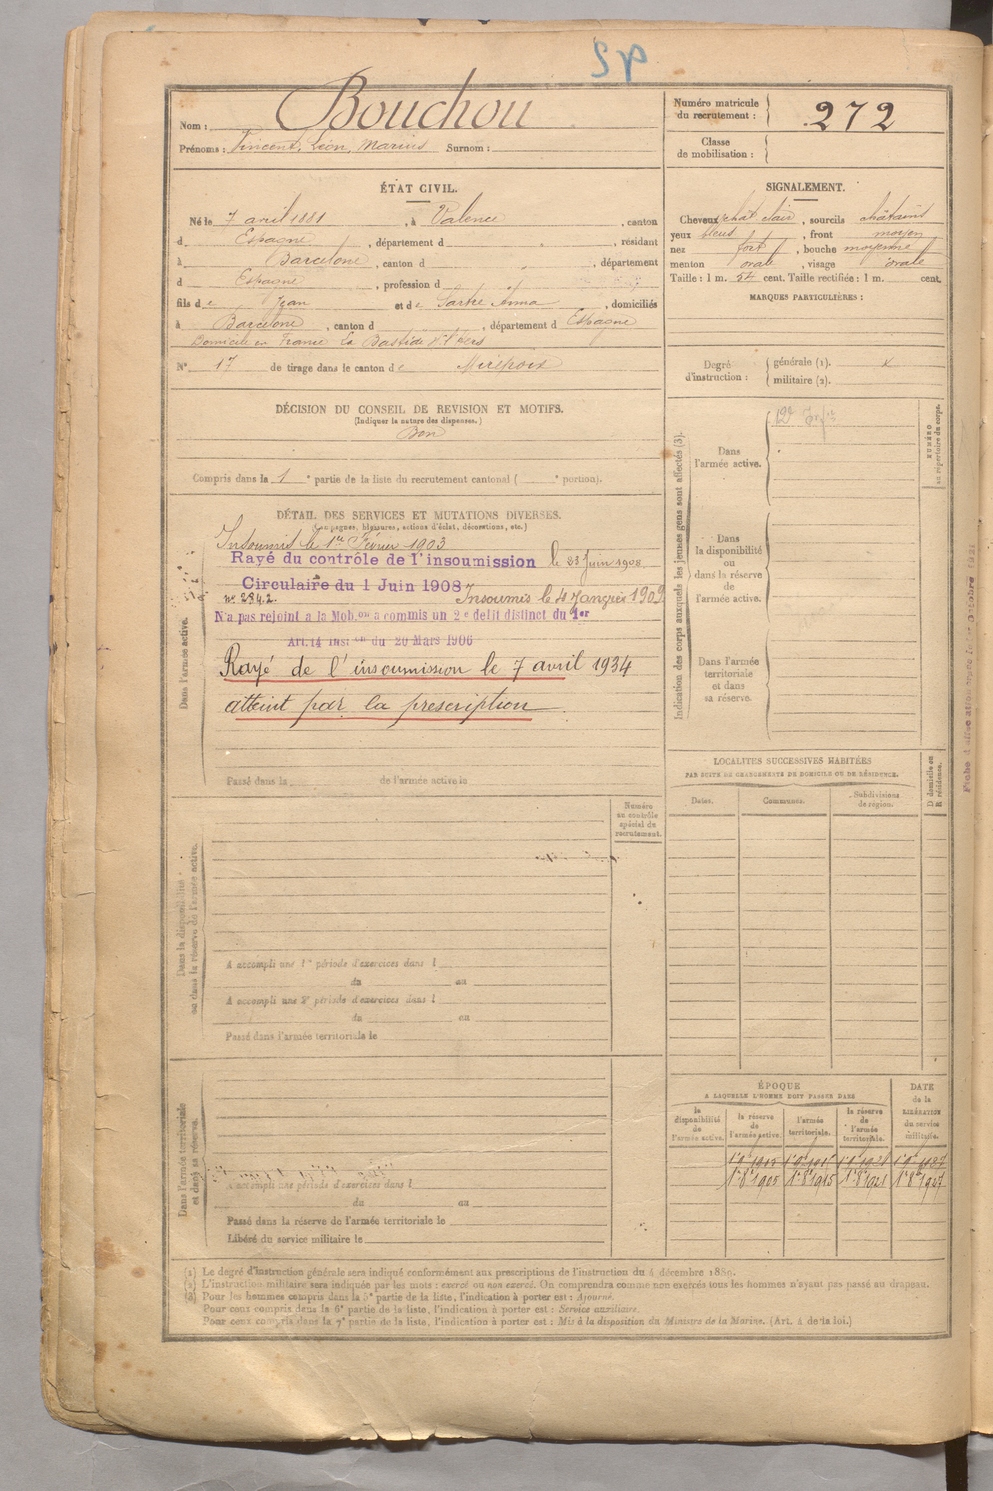 Nom : Bouchou
Prénoms : Vincent, Léon, Marius Surnom :
Numéro matricule du recrutement : 272
Classe de mobilisation :
ÉTAT CIVIL.
Né le 7 avril 1881, à Valence, canton
d Espagne, département d , résidant
à Barcelone, canton d , département
d Espagne, profession d
fils de Jean et de Sartre Anna, domiciliés
à Barcelone, canton d , département d Espagne
Domicile en France La Bastide s/ l'hers
N° 17 de tirage dans le canton de Mirepoix
SIGNALEMENT.
Cheveux chat clair, sourcils châtains
yeux bleus, front moyen
nez fort, bouche moyenne
menton ovale, visage ovale
Taille : 1 m. 54 cent. Taille rectifiée : 1 m. cent.
MARQUES PARTICULIÈRES :
Degré d'instruction : générale (1). x
militaire (2).
DÉCISION DU CONSEIL DE REVISION ET MOTIFS.
(Indiquer la nature des dispenses.)
Bon
Compris dans la 1e partie de la liste du recrutement cantonal ( e portion).
DÉTAIL DES SERVICES ET MUTATIONS DIVERSES.
(Campagnes, blessures, actions d'éclat, décorations, etc.)
Dans l'armée active.
Insoumis le 1er Février 1903
Rayé du contrôle de l'insoumission le 23 Juin 1908
Circulaire du 1 Juin 1908
Insoumis le 4 Janvier 1909
N'a pas rejoint a la Mob.on a commis un 2e delit distinct du 1er
Art. 14 Inst.on du 20 Mars 1906
Rayé de l'insoumission le 7 avril 1934
atteint par la prescription
Passé dans la de l'armée active le
Indication des corps auxquels les jeunes gens sont affectés (3).
NUMÉRO au répertoire du corps.
Dans l'armée active.
Dans la disponibilité ou dans la réserve de l'armée active.
Dans l'armée territoriale et dans sa réserve.
LOCALITÉS SUCCESSIVES HABITÉES
PAR SUITE DE CHANGEMENTS DE DOMICILE OU DE RÉSIDENCE.
Dates.
Communes.
Subdivisions de région.
D domicile ou R résidence.
Dans la disponibilité ou dans la réserve de l'armée active.
Numéro au contrôle spécial du recrutement.
A accompli une 1re période d'exercices dans l
du au
A accompli une 2e période d'exercices dans l
du au
Passé dans l'armée territoriale le
Dans l'armée territoriale et dans sa réserve.
A accompli une période d'exercices dans l
du au
Passé dans la réserve de l'armée territoriale le
Libéré du service militaire le
ÉPOQUE
A LAQUELLE L'HOMME DOIT PASSER DANS
la disponibilité de l'armée active.
la réserve de l'armée active.
l'armée territoriale.
la réserve de l'armée territoriale.
DATE de la LIBÉRATION du service militaire.
(1) Le degré d'instruction générale sera indiqué conformément aux prescriptions de l'instruction du 4 décembre 1889.
(2) L'instruction militaire sera indiquée par les mots : exercé ou non exercé. On comprendra comme non exercés tous les hommes n'ayant pas passé au drapeau.
(3) Pour les hommes compris dans la 5e partie de la liste, l'indication à porter est : Ajourné.
Pour ceux compris dans la 6e partie de la liste, l'indication à porter est : Service auxiliaire.
Pour ceux compris dans la 7e partie de la liste, l'indication à porter est : Mis à la disposition du Ministre de la Marine. (Art. 4 de la loi.)